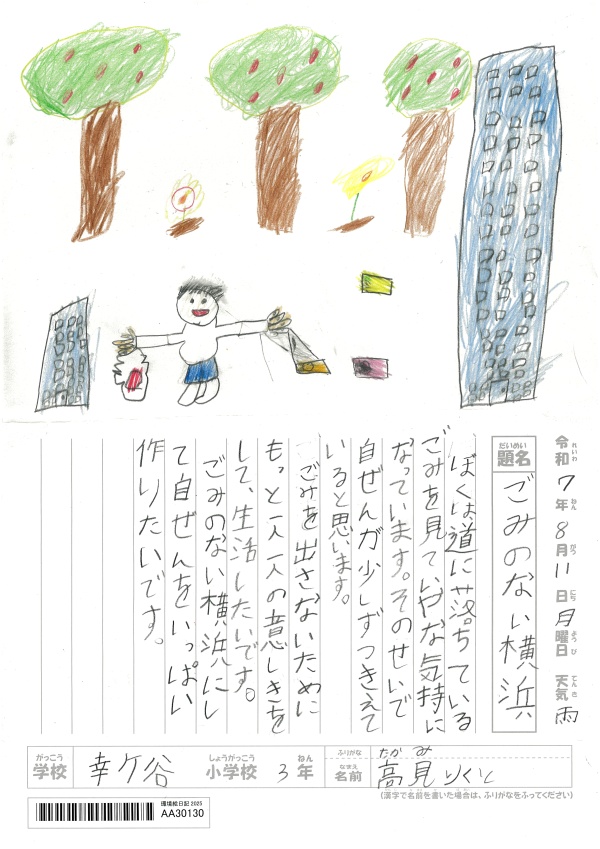 令和7年8月11日月曜日 天気 雨
れいわ ねん がつ にち ようび てんき
だいめい
題名 ごみのない横浜
ぼくは道に落ちている
ごみを見ていやな気持に
なっています。そのせいで
自ぜんが少しずつきえて
いると思います。
ごみを出さないために
もっと一人一人の意しきを
して、生活したいです。
ごみのない横浜にし
て自ぜんをいっぱい
作りたいです。
がっこう しょうがっこう ねん ふりがな たかみ
学校 幸ケ谷 小学校 3年 なまえ 名前 高見りくと
(漢字で名前を書いた場合は、ふりがなをふってください)
環境絵日記 2025
AA30130